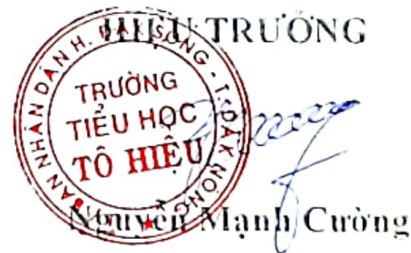 HIỆU TRƯỞNG
ỦY BAN NHÂN DÂN H. ĐẮK SONG - T. ĐẮK NÔNG
TRƯỜNG
TIỂU HỌC
TÔ HIỆU
Nguyễn Mạnh Cường